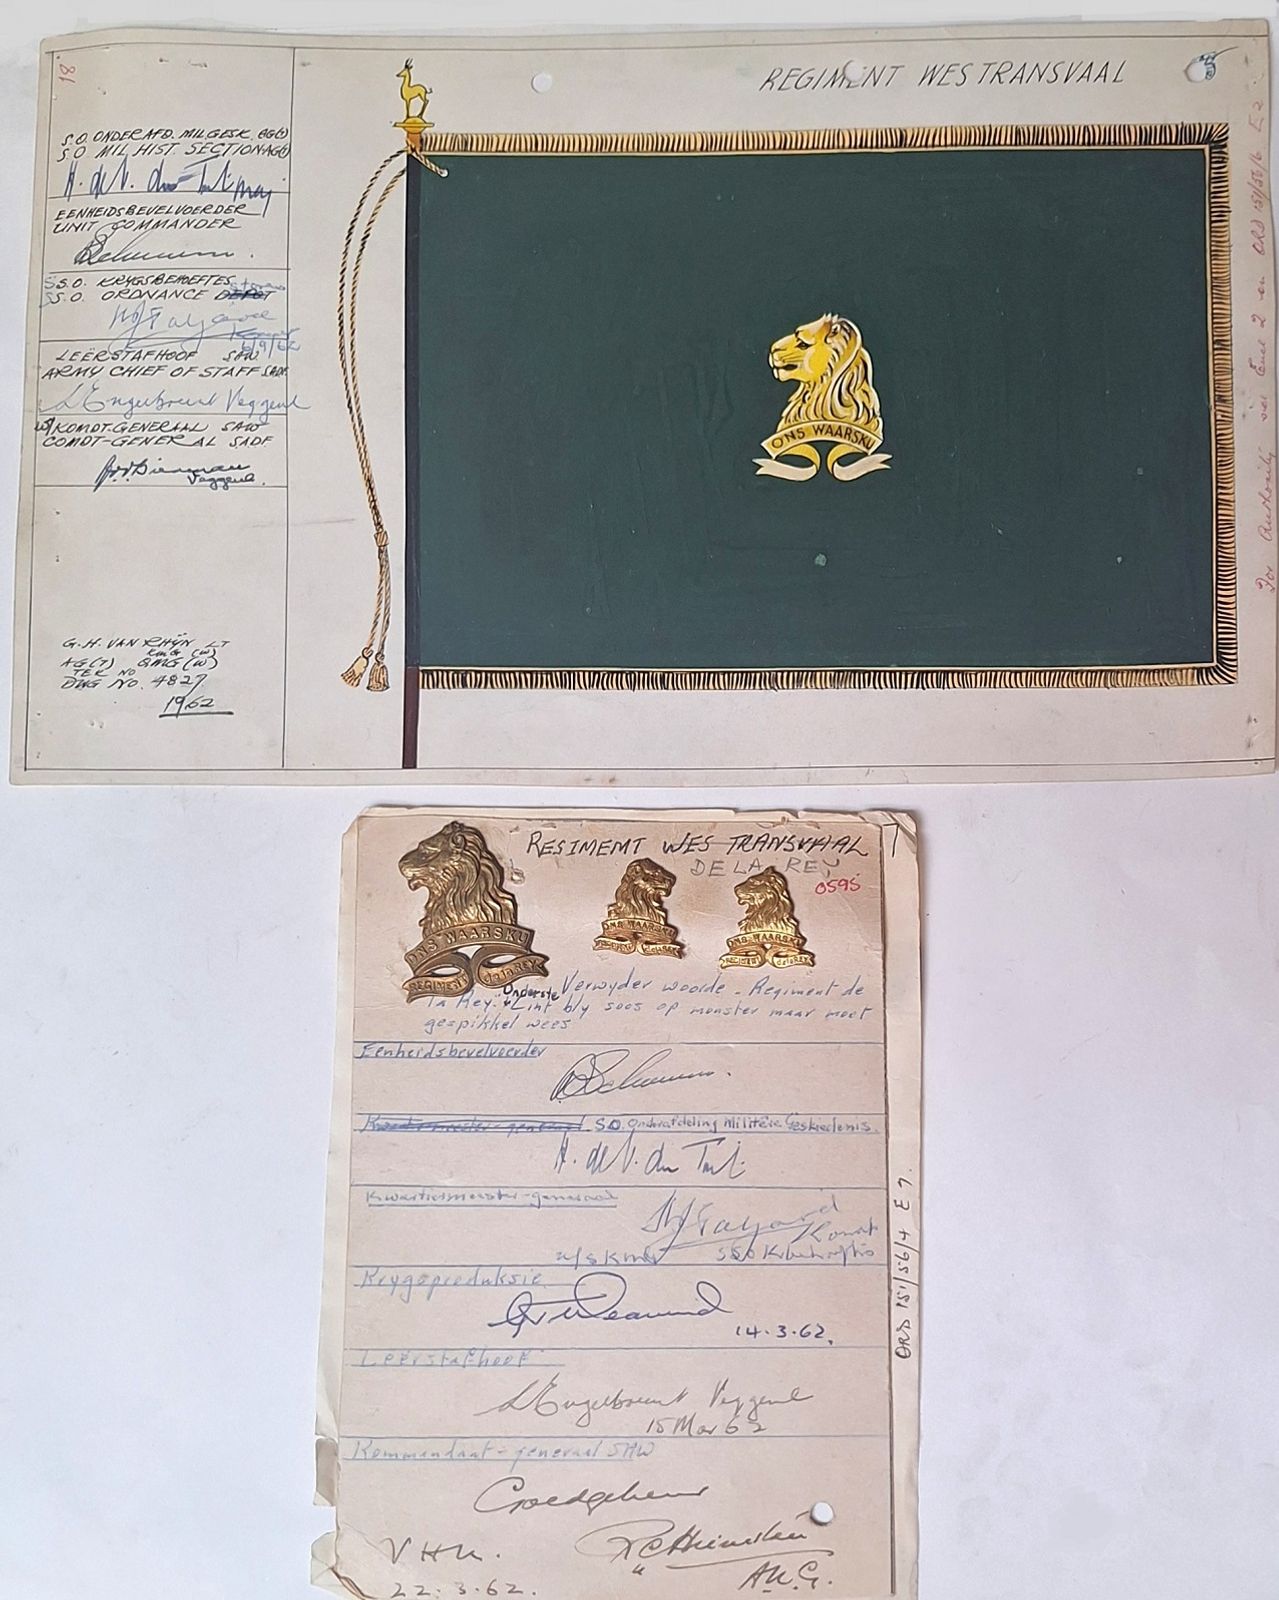 18
REGIMENT WES TRANSVAAL
S.O. ONDERAFD. MIL.GESK. AG(1)
S.O MIL HIST. SECTION AG(1)
H. de V. du Toit maj
EENHEIDSBEVELVOERDER
UNIT COMMANDER
SS.O. KRYGSBEHOEFTES
SS.O. ORDNANCE DEPOT
6/9/62
LEËRSTAFHOOF SAW
ARMY CHIEF OF STAFF SADF
Veggenl
KOMDT-GENERAAL SAW
COMDT-GENERAL SADF
Veggenl.
G.H. VAN RHŸN LT
KMG (W)
AG(T) QMG (W)
TEK NO
DWG NO. 4827
1962
ONS WAARSKU
For Authority see Encl 2 on ORD 151/56/6 E2
REGIMEMT WES TRANSVAAL
DE LA REY
0595
7
ONS WAARSKU
REGIMENT de la REY
ONS WAARSKU
REGIMENT de la REY
ONS WAARSKU
REGIMENT de la REY
Verwyder woorde - Regiment de
la Rey. Onderste Lint bly soos op monster maar moet
gespikkel wees
Eenheidsbevelvoerder
Kwartiermeester-generaal S.O. Onderafdeling Militêre Geskiedenis.
H. de V. du Toit
Kwartiermeester-generaal
Kmdt
Krygsproduksie
14.3.62.
Leërstafhoof
Veggenl
15 Mar 62
Kommandant-generaal SAW
Goedgekeur
V H K.
22.3.62.
A.K.G.
ORD 151/56/4 E 7.